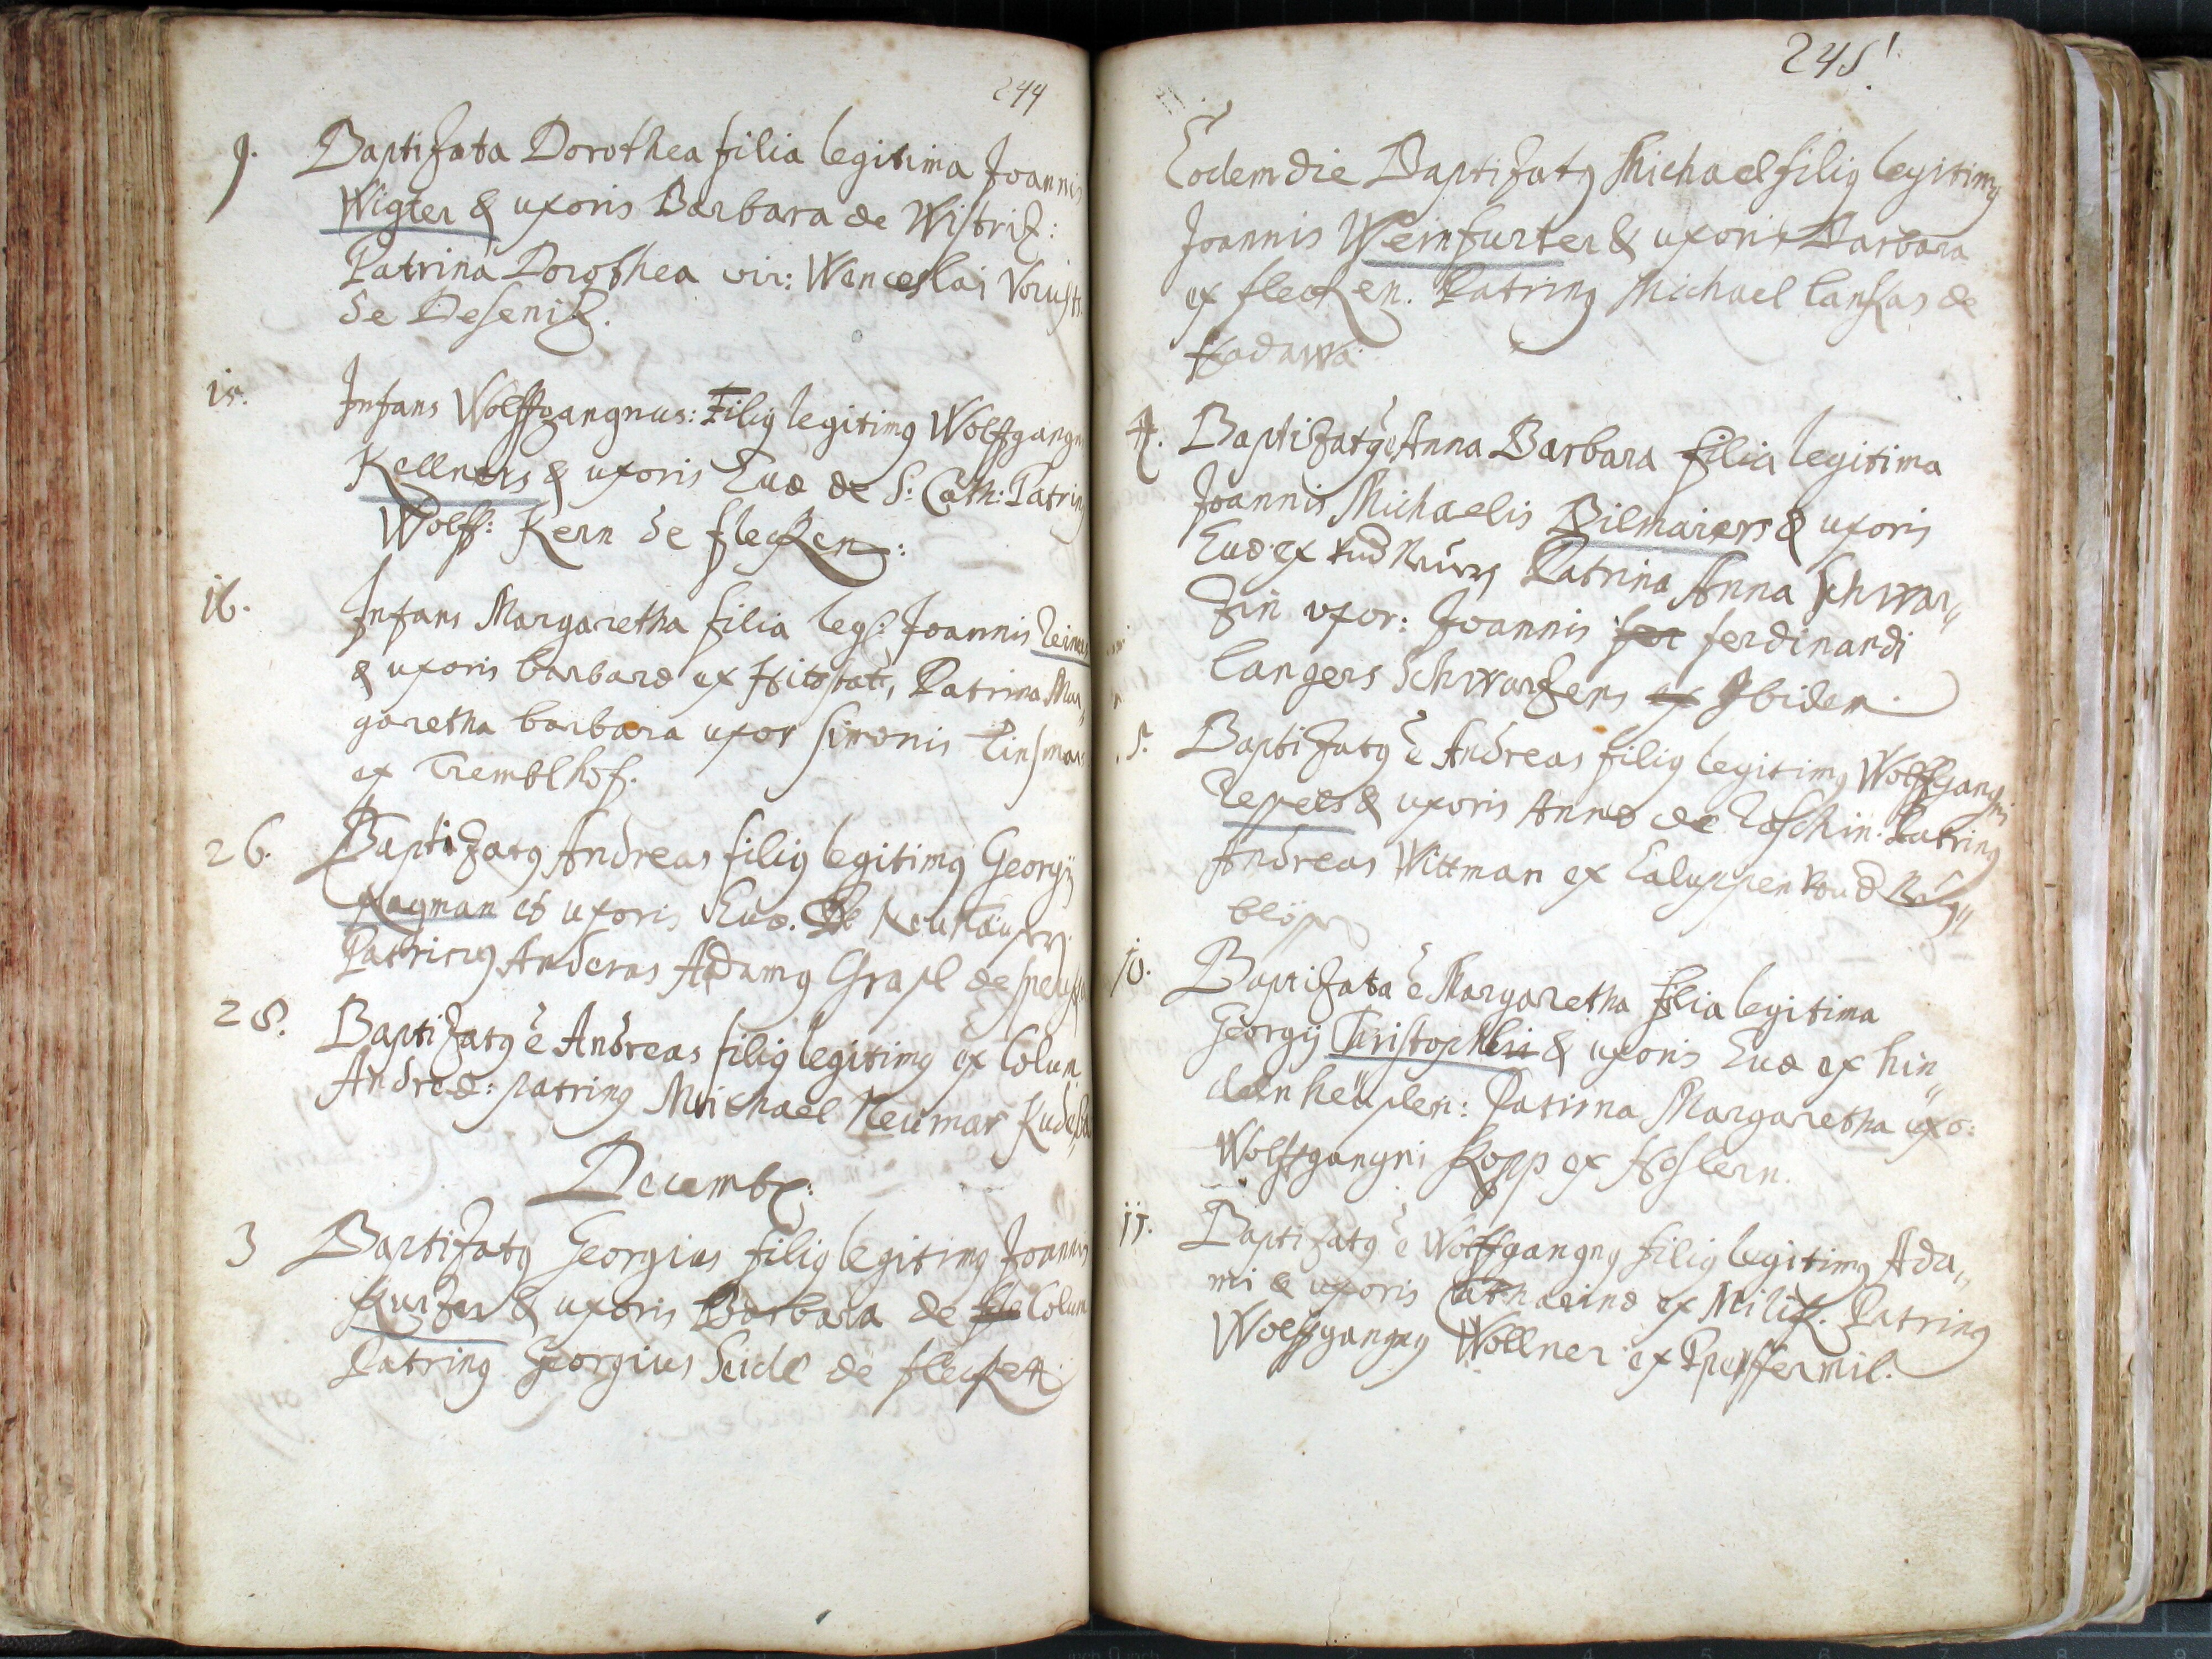 244
9. Baptizata Dorothea filia legitima Joannis
Wigter & uxoris Barbara de Wistriz:
Patrina Dorothea vir: Wenceslai
de Deseniz.
15. Infans Wolffgangnus: Filiꝰ legitimꝰ Wolffgangni
Kellners & uxoris Euæ de S: Cath: Patrinꝰ
Wolff: Kern de flecken:
16. Infans Margaretha filia leg: Joannis
& uxoris barbaræ ex Hitostat, Patrina Mar„
garetha barbara uxor simonis
ex Tremblhof.
26. Baptizatꝰ Andreas filiꝰ legitimꝰ Georgij
et uxoris Euæ. De
Patrinꝰ Anderas Adamꝰ Grasl de
28. Baptizatꝰ ē Andreas filiꝰ legitimꝰ ex Colum
Andreæ: patrinꝰ Michael Neumar
Decemb:
3 Baptizatꝰ Georgius filiꝰ legitimꝰ Joannis
Kurzer & uxoris Barbara de Colum
Patrinꝰ Georgius Seidl de flecken
245
Eodem die Baptizatꝰ Michael filiꝰ legitimꝰ
Joannis Weinfurter & uxoris Barbara
ex flecken. Patrinꝰ Michael Canskas de
Hadawa.
4. Baptizatꝰ ē Anna Barbara filia legitima
Joannis Michaelis Bilmaiers & uxoris
Euæ ex Patrina Anna Schwar„
zin uxor: Joannis ferdinandi
langers Schwarzens ex Ibidem.
5. Baptizatꝰ ē Andreas filiꝰ legitimꝰ Wolffgangni
& uxoris Annæ de Patrinꝰ
Andreas Wittman ex Caluppen
10. Baptizata ē Margaretha filia legitima
Georgij Christophli & uxoris Euæ ex hin„
deln heuplen: Patrina Margaretha uxo:
Wolffgangni Kopp ex Hoslern.
11. Baptizatꝰ ē Wolffgangnꝰ filiꝰ legitimꝰ Ada„
mi & uxoris Catharinæ ex Miliz. Patrinꝰ
Wolffgangnꝰ Wollner ex Pfeffermil.